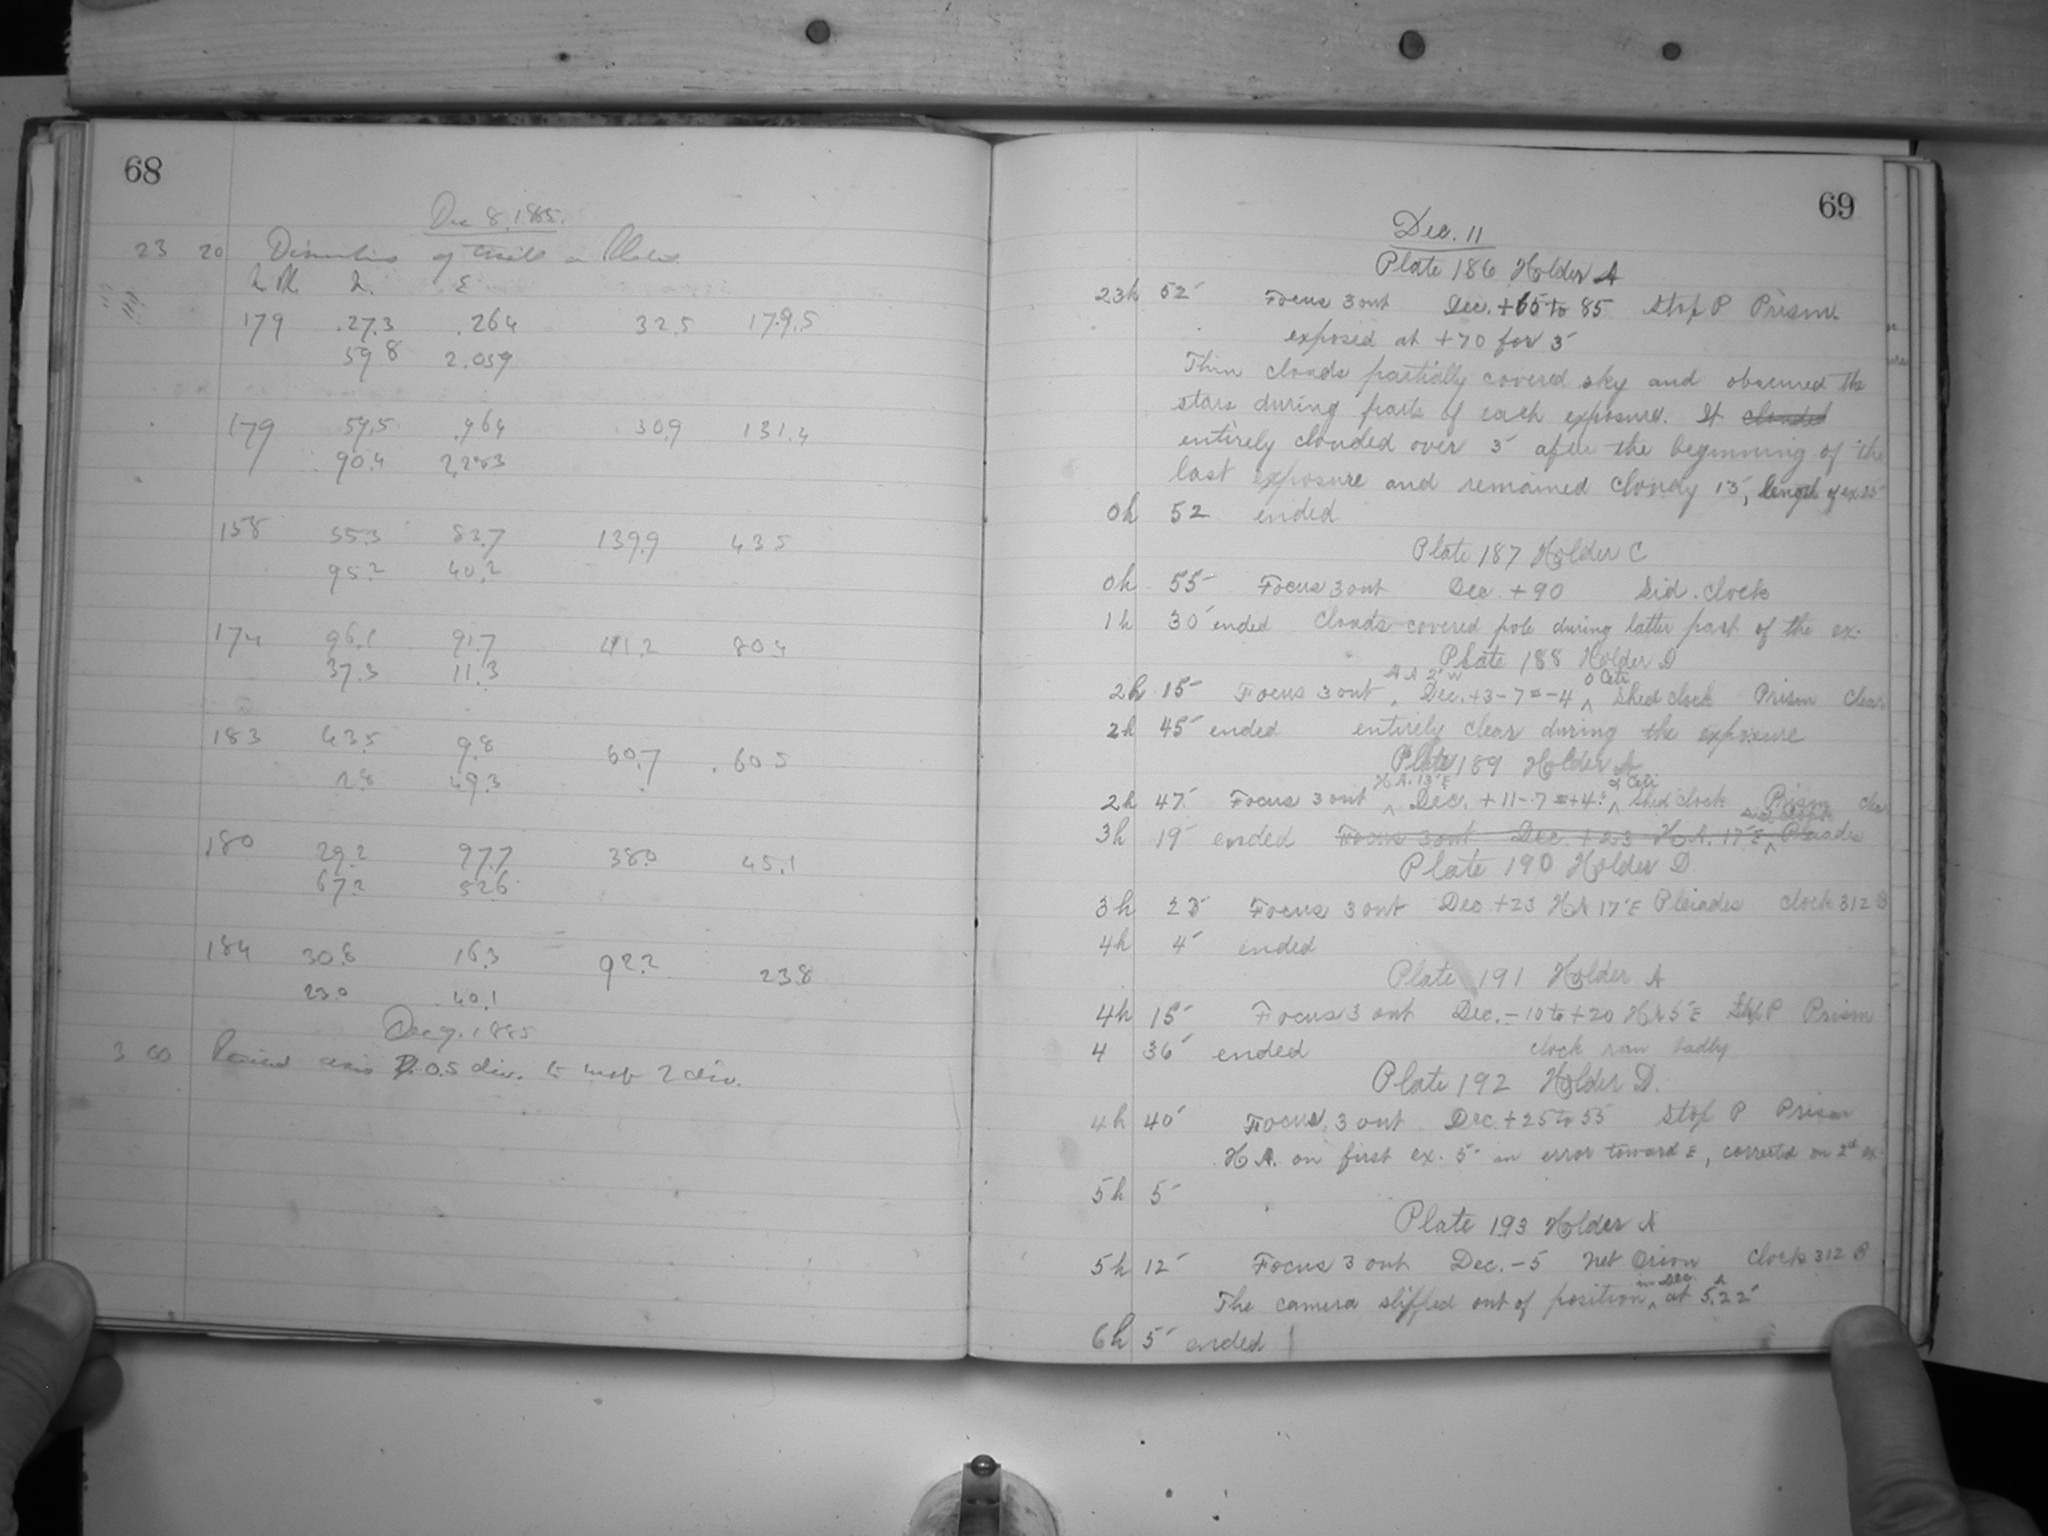 68
Dec 8, 1885.
23 20 of trails on Plates
179 .27.3 .264 32.5 179.5
59 8 2.059
179 59.5 .964 30.9 131.4
90.4 2,283
158 55.3 83.7 139.9 435
95.2 40.2
174 96.1 91.7 41.2 80.4
37.3 11.3
183 63.5 9.8 60.7 .605
2.8 49.3
180 29.2 97.7 38.0 45.1
67.2 52.6
184 30.8 16.3 92.2 23.8
23.0 40.1
Dec 9. 1885
3 00 axis 0.5 div. 2 div.
69
Dec. 11
Plate 186 Holder A
23h 52' Focus 3 out Dec. +65 to 85 Stop P Prism.
exposed at +70 for 5'
Thin clouds partially covered sky and obscured the
stars during parts of each exposure. It clouded
entirely clouded over 5' after the beginning of the
last exposure and remained cloudy 15', length of ex 25'
0h 52 ended
Plate 187 Holder C
0h 55' Focus 3 out Dec. +90 Sid. clock
1h 30' ended Clouds covered pole during latter part of the ex.
Plate 188 Holder D
H A 2' W o Ceti
2h 15' Focus 3 out ‸ Dec. +3-7=-4 ‸ Shed clock Prism Clear
2h 45' ended entirely clear during the exposure
Plate 189 Holder A
H.A. 13' E α Ceti
2h 47' Focus 3 out ‸ Dec. +11-7=+4° ‸ Shed clock Prism
3h 19' ended Focus 3 out Dec. +23 H.A. 17' E ‸ Pleiades
Plate 190 Holder D
3h 23' Focus 3 out Dec +23 HA 17' E Pleiades clock 312 B
4h 4' ended
Plate 191 Holder A
4h 15' Focus 3 out Dec. -10 to +20 HA 5' E Stop P Prism
4 36' ended clock ran badly
Plate 192 Holder D.
4h 40' Focus 3 out Dec. +25 to 55 Stop P Prism
H A. on first ex. 5' in error toward E, corrected on 2d ex.
5h 5'
Plate 193 Holder A
5h 12' Focus 3 out Dec. -5 Neb. Orion clock 312 B
in Dec. h
The camera slipped out of position ‸ at 5.22'
6h 5' ended